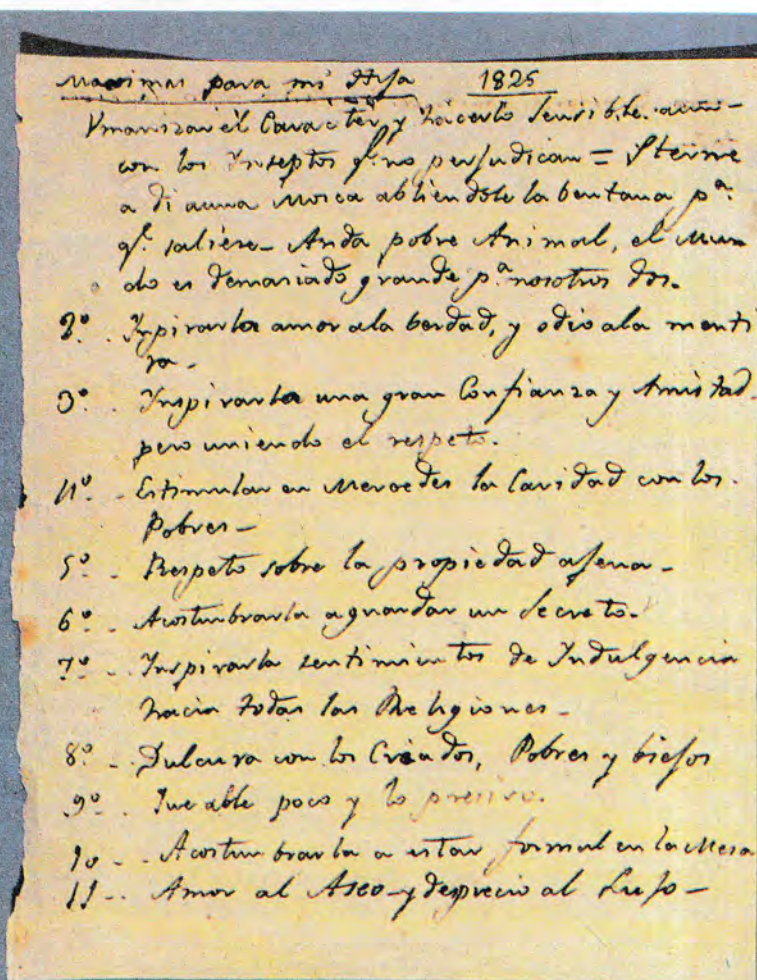 Maximas para mi Hija 1825
Vmanizar el Caracter y hacerlo Sensible. aun-
con los Inseptos q.e no perjudican = Sterne
a di auna Mosca abliendole la bentana p.a
q.e saliese- Anda pobre Animal, el Mun
do es demasiado grande p.a nosotros dos.
2º. Inpirarla amor ala berdad, y odio ala menti
ra-
3º. Inspirarla una gran Confianza y Amistad.
pero uniendo el respeto.
4º.- Estimular en Mercedes la Caridad con los.
Pobres-
5º.- Respeto sobre la propiedad ajena-
6º.- Acostumbrarla aguardar un Secreto.
7º- Inspirarla sentimientos de Indulgencia
hacia todas las Religiones-
8º- Dulsura con los Criados, Pobres y biejos
9º. Que able poco y lo preciso.
10-. Acostumbrarla a estar formal en la Mesa
11-. Amor al Aseo-y desprecio al Lujo-